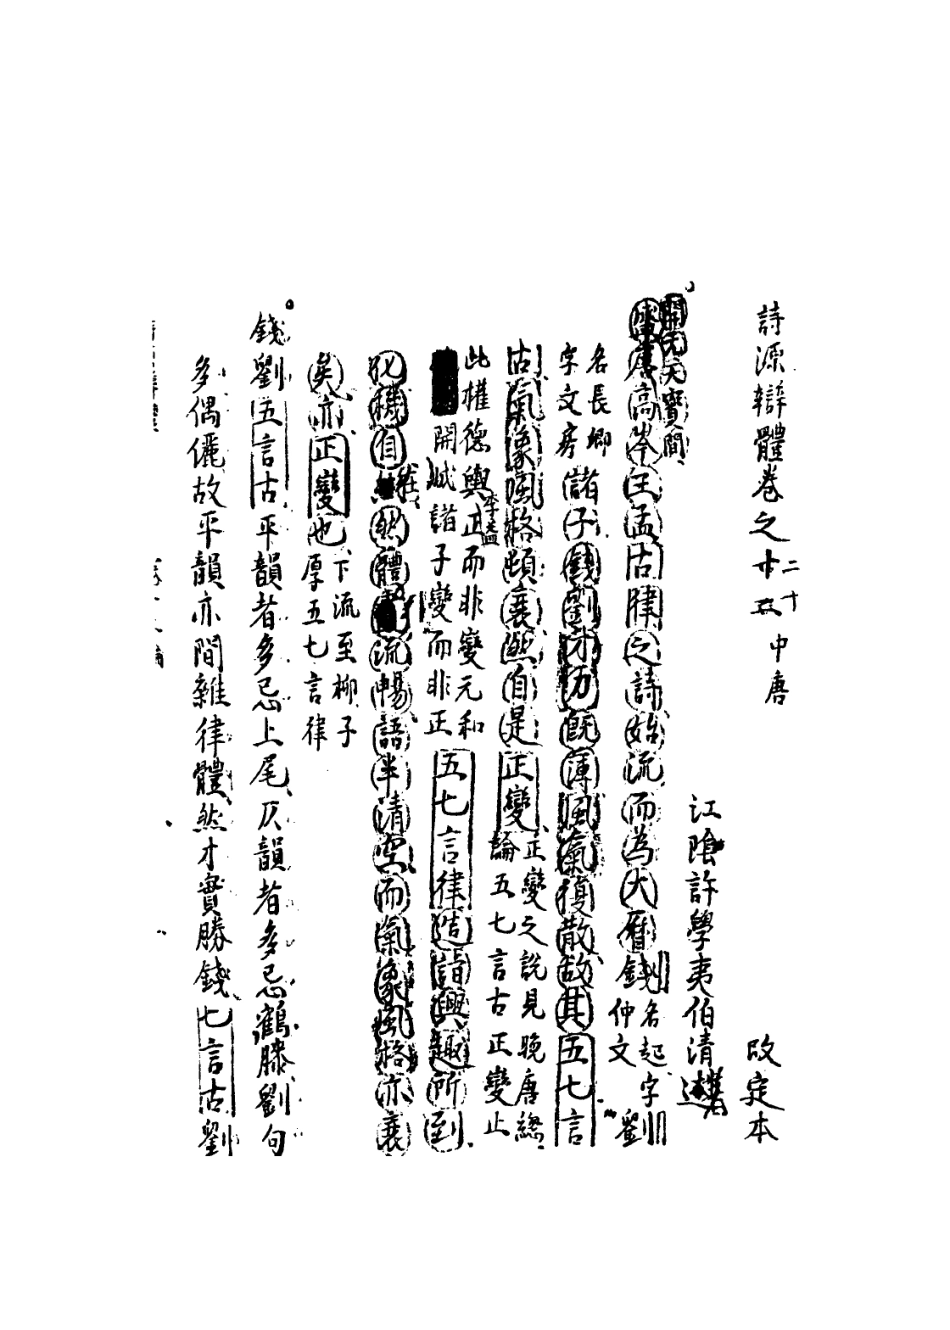 詩源辯體卷之二十 中唐 改定本
江陰許學夷伯清著
開元天寶間
盛唐高岑王孟古律之詩始流而為大曆錢名起字仲文劉
名長卿字文房諸子錢劉才力既薄風氣復散故其五七言
古氣象風格頓衰然自是正變正變之說見晚唐總論五七言古正變止
此權德輿李益正而非變元和開成諸子變而非正五七言律造詣興趣所到
化機自在然體流暢語半清空而氣象風格亦衰
矣亦正變也下流至柳子厚五七言律
錢劉五言古平韻者多忌上尾仄韻者多忌鶴膝劉句
多偶儷故平韻亦間雜律體然才實勝錢七言古劉